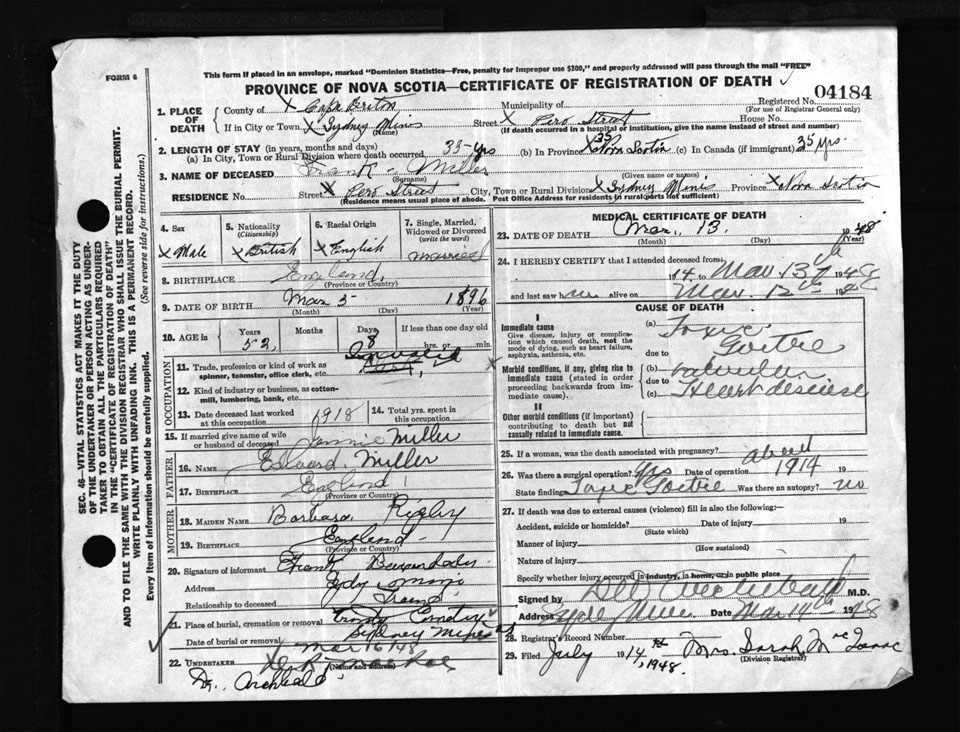 FORM 6
This form if placed in an envelope, marked "Dominion Statistics—Free, penalty for improper use $300," and properly addressed will pass through the mail "FREE"
PROVINCE OF NOVA SCOTIA—CERTIFICATE OF REGISTRATION OF DEATH
04184
Registered No.
(For use of Registrar General only)
1. PLACE OF DEATH
County of X Cape Breton
Municipality of
If in City or Town X Sydney Mines
(Name)
Street X Pero Street
House No.
(If death occurred in a hospital or institution, give the name instead of street and number)
2. LENGTH OF STAY (in years, months and days)
(a) In City, Town or Rural Division where death occurred 35 yrs (b) In Province X 35 Nova Scotia (c) In Canada (if immigrant) 35 yrs
3. NAME OF DECEASED Frank - Miller
(Surname) (Given name or names)
RESIDENCE No. Street X Pero Street City, Town or Rural Division X Sydney Mines Province X Nova Scotia
(Residence means usual place of abode. Post Office Address for residents in rural parts not sufficient)
4. Sex
X Male
5. Nationality
(Citizenship)
X British
6. Racial Origin
X English
7. Single, Married, Widowed or Divorced
(write the word)
married
8. BIRTHPLACE England
(Province or Country)
9. DATE OF BIRTH Mar 5 1896
(Month) (Day) (Year)
10. AGE in
Years Months Days If less than one day old
52 8 hrs. or min.
OCCUPATION
11. Trade, profession or kind of work as spinner, teamster, office clerk, etc. Invalid
12. Kind of industry or business, as cotton-mill, lumbering, bank, etc.
13. Date deceased last worked at this occupation 1918
14. Total yrs. spent in this occupation
15. If married give name of wife or husband of deceased Jennie Miller
FATHER
16. NAME Edward Miller
17. BIRTHPLACE England
(Province or Country)
MOTHER
18. MAIDEN NAME Barbara Rigley
19. BIRTHPLACE England
(Province or Country)
20. Signature of informant Frank
Address Sydney Mines
Relationship to deceased Friend
21. Place of burial, cremation or removal Trinity Cemetery Sydney Mines
Date of burial or removal Mar 16/48
22. UNDERTAKER
(Name and address)
Dr. Archbald
MEDICAL CERTIFICATE OF DEATH
23. DATE OF DEATH Mar. 13. 1948
(Month) (Day) (Year)
24. I HEREBY CERTIFY that I attended deceased from
14 to Mar 13th 1948
and last saw him alive on Mar. 12th 1948
CAUSE OF DEATH
I
Immediate cause
Give disease, injury or complication which caused death, not the mode of dying, such as heart failure, asphyxia, asthenia, etc.
Morbid conditions, if any, giving rise to immediate cause (stated in order proceeding backwards from immediate cause).
II
Other morbid conditions (if important) contributing to death but not causally related to immediate cause.
(a) Toxic
due to Goitre
(b) valvular
due to
(c) Heart desease
25. If a woman, was the death associated with pregnancy?
26. Was there a surgical operation? Yes Date of operation about 1914 19
State finding Toxic Goitre Was there an autopsy? no
27. If death was due to external causes (violence) fill in also the following:
Accident, suicide or homicide? Date of injury 19
(State which)
Manner of injury
(How sustained)
Nature of injury
Specify whether injury occurred in industry, in home, or in public place
Signed by M.D.
Address Sydney Mines Date Mar 14th 1948
28. Registrar's Record Number
29. Filed July 14th 1948. Mrs. Sarah McIsaac
(Division Registrar)
SEC. 46—VITAL STATISTICS ACT MAKES IT THE DUTY
OF THE UNDERTAKER OR PERSON ACTING AS UNDER-
TAKER TO OBTAIN ALL THE PARTICULARS REQUIRED
IN THE "CERTIFICATE OF REGISTRATION OF DEATH"
AND TO FILE THE SAME WITH THE DIVISION REGISTRAR WHO SHALL ISSUE THE BURIAL PERMIT.
WRITE PLAINLY WITH UNFADING INK. THIS IS A PERMANENT RECORD.
Every item of information should be carefully supplied. (See reverse side for instructions.)